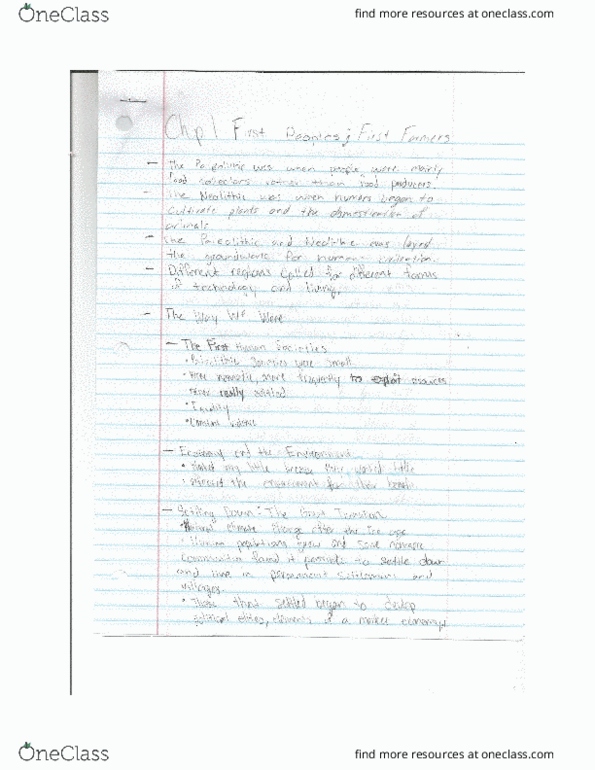 OneClass
find more resources at oneclass.com
Chp 1 First Peoples; First Farmers
- The Paleolithic was when people were mainly
food collectors rather than food producers.
- The Neolithic was when humans began to
cultivate plants and the domestication of
animals
- The Paleolithic and Neolithic eras layed
the groundwork for human civilization.
- Different regions called for different forms
of technology and living.
- The Way We Were
- The First Human Societies
• Paleolithic societies were small
• were nomadic, move frequently to exploit resources
• never really settled
• Equality
• Constant violence
- Economy and the Environment
• very little because they wanted little
• the environment for their
- Settling Down: The Great Transition
• climate change after the Ice age
• Human populations grew and some nomadic
communities found it possible to settle down
and live in permanent settlements and
villages.
• Those that settled began to develop
political elites, elements of a market economy
OneClass
find more resources at oneclass.com